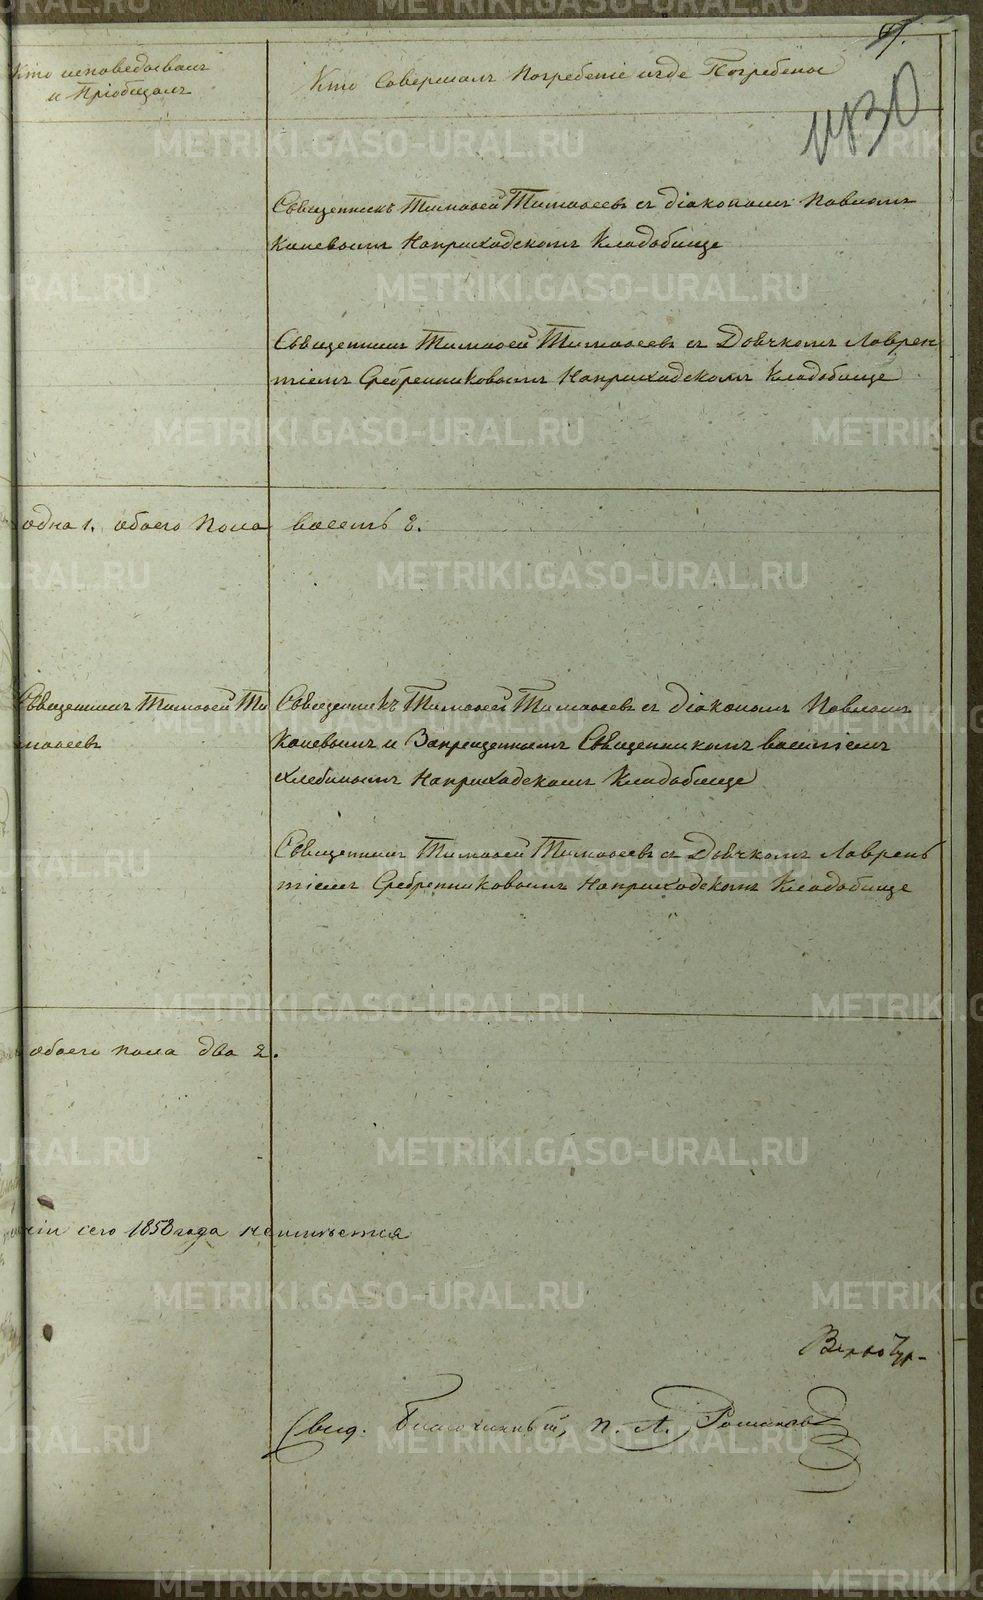 Кто исповедывалъ
и Пріобщалъ
Кто Совершалъ Погребеніе и гдѣ Погребены
1130
Священникъ Тимоѳей Тимоѳеевъ съ діакономъ Павломъ
Каневымъ На приходскомъ Кладбище
Священникъ Тимоѳей Тимоѳеевъ съ Дьячкомъ Лаврен
тіемъ Сребренниковымъ На приходскомъ Кладбище
одна 1. обоего Пола восемь 8.
Священникъ Тимоѳей Ти
моѳеевъ
Священникъ Тимоѳей Тимоѳеевъ съ діакономъ Павломъ
Каневымъ и Запрещеннымъ Священникомъ
Хлебинымъ На приходскомъ Кладбище
Священникъ Тимоѳей Тимоѳеевъ съ Дьячкомъ Лаврень
тіемъ Сребренниковымъ На приходскомъ Кладбище
обоего пола два 2.
сего 1858 года
Верхотур-
Свид. Благочинный, П. А. Романовъ
METRIKI.GASO-URAL.RU